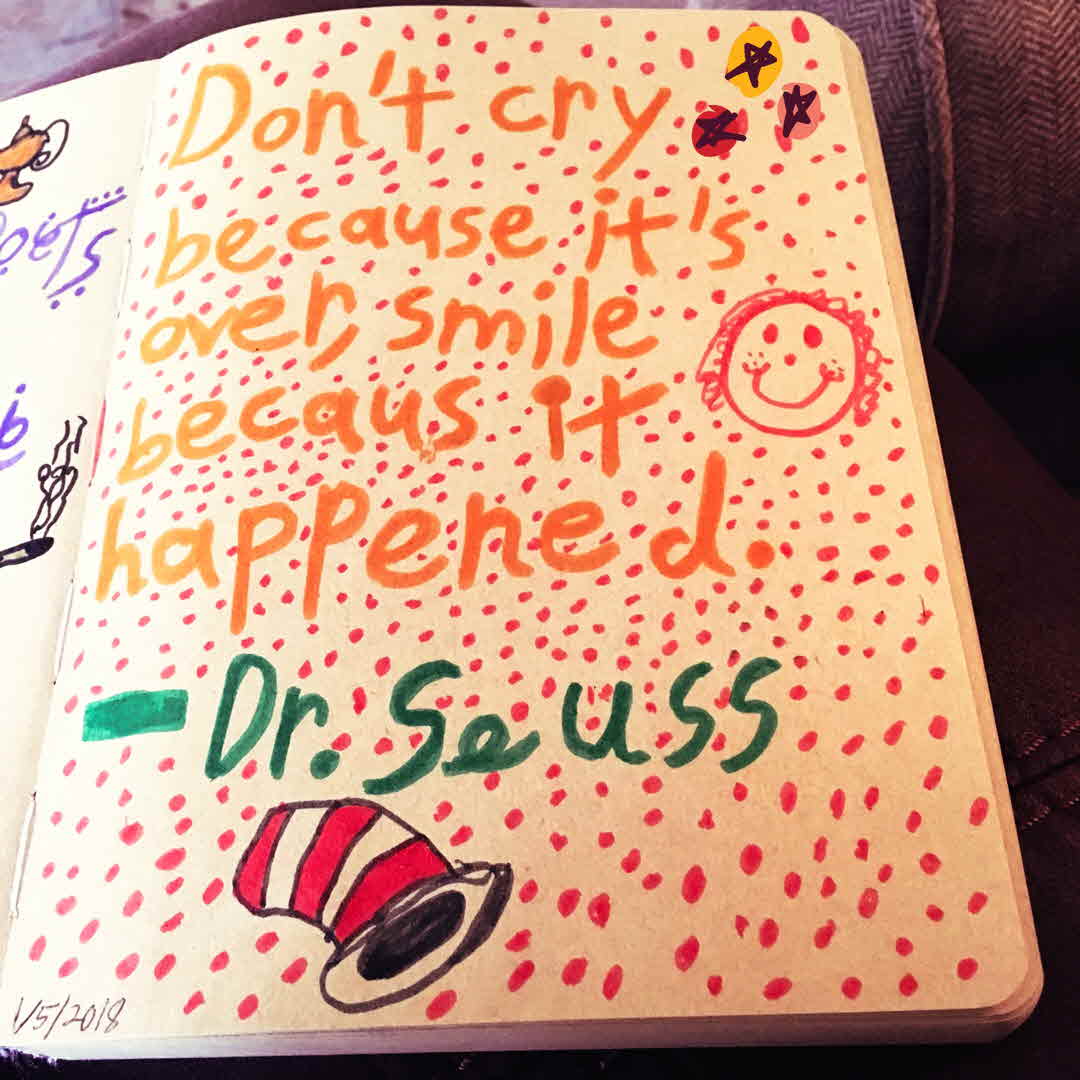 Don't cry
because it's
over, smile
becaus it
happened.
- Dr. Seuss
1/5/2018